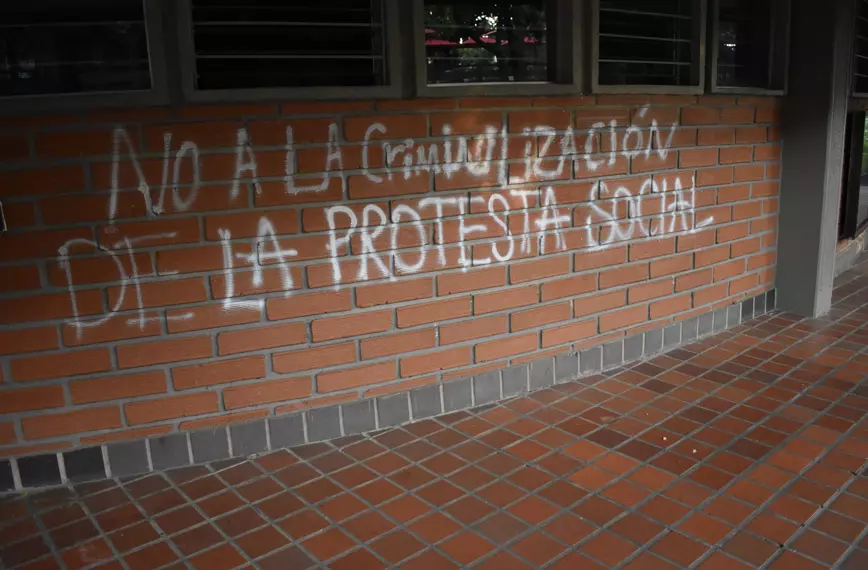 No A LA CrimiNaLIZACIÓN
DE LA PROTESTA SOCIAL